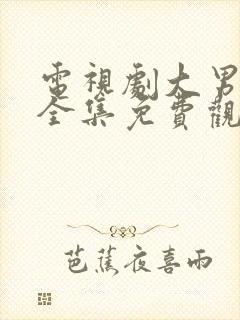 電視劇大男
全集免費觀
芭蕉夜喜雨